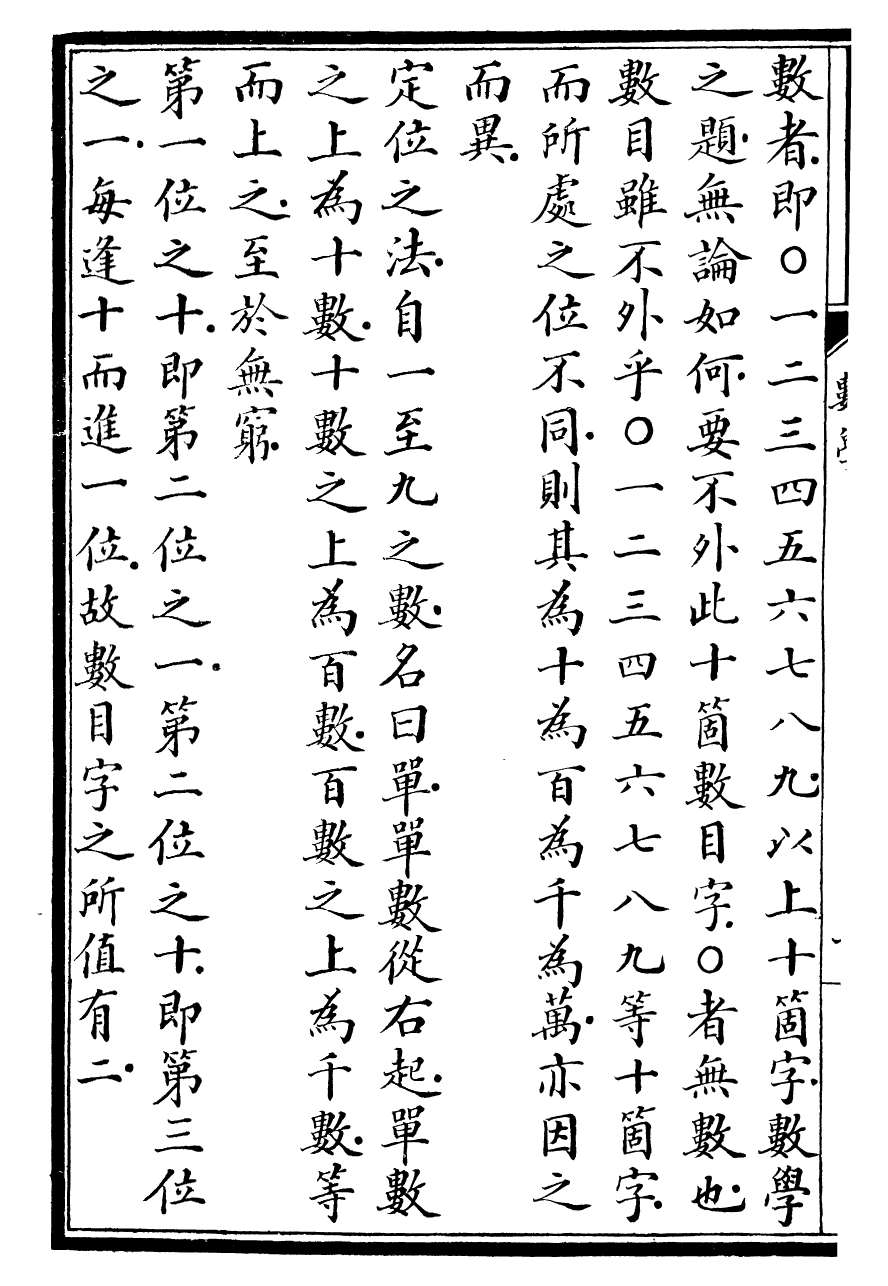 數者．即〇一二三四五六七八九．以上十箇字．數學
之題．無論如何．要不外此十箇數目字．〇者無數也．
數目雖不外乎〇一二三四五六七八九等十箇字．
而所處之位不同．則其為十為百為千為萬．亦因之
而異．
定位之法．自一至九之數．名曰單．單數從右起．單數
之上為十數．十數之上為百數．百數之上為千數．等
而上之．至於無窮．
第一位之十．即第二位之一．第二位之十．即第三位
之一．每逢十而進一位．故數目字之所值有二．